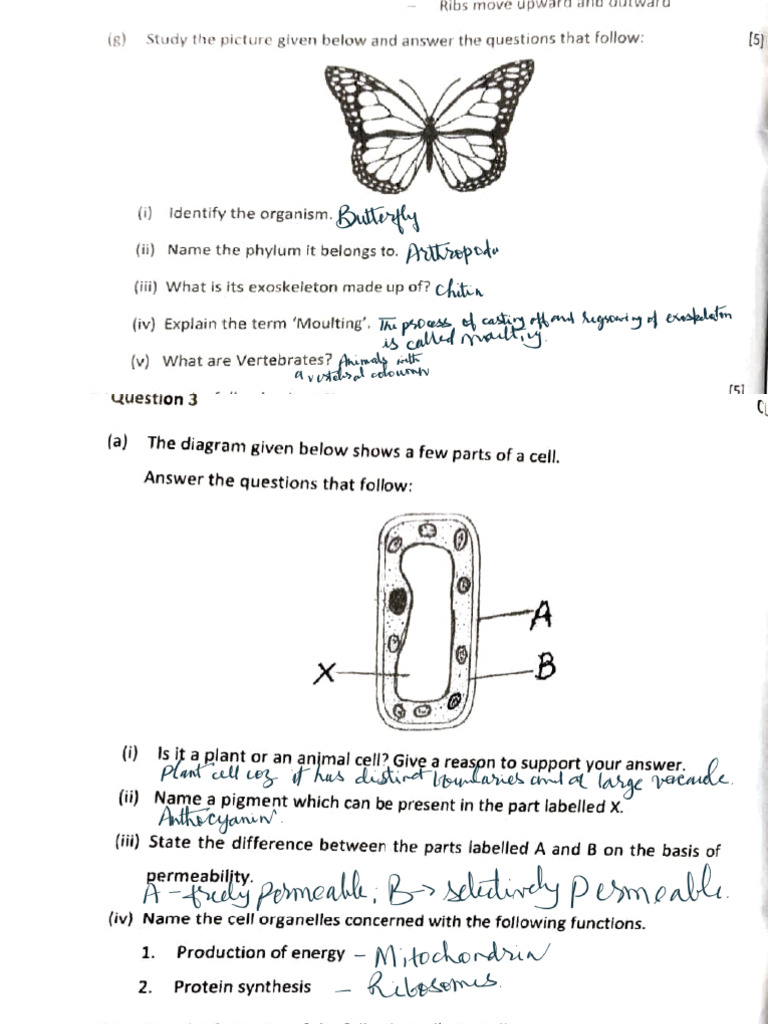 – Ribs move upward and outward
(g) Study the picture given below and answer the questions that follow: [5]
(i) Identify the organism. Butterfly
(ii) Name the phylum it belongs to. Arthropoda
(iii) What is its exoskeleton made up of? chitin
(iv) Explain the term 'Moulting'. The process of casting off and regrowing of exoskeleton
is called moulting.
(v) What are Vertebrates? Animals with
a vertebral coloumn
[5]
Question 3
(a) The diagram given below shows a few parts of a cell.
Answer the questions that follow:
A
X
B
(i) Is it a plant or an animal cell? Give a reason to support your answer.
Plant cell coz it has distinct boundaries and a large vacuole.
(ii) Name a pigment which can be present in the part labelled X.
Anthocyanin.
(iii) State the difference between the parts labelled A and B on the basis of
permeability.
A – freely permeable; B → selectively permeable.
(iv) Name the cell organelles concerned with the following functions.
1. Production of energy – Mitochondria
2. Protein synthesis – Ribosomes.